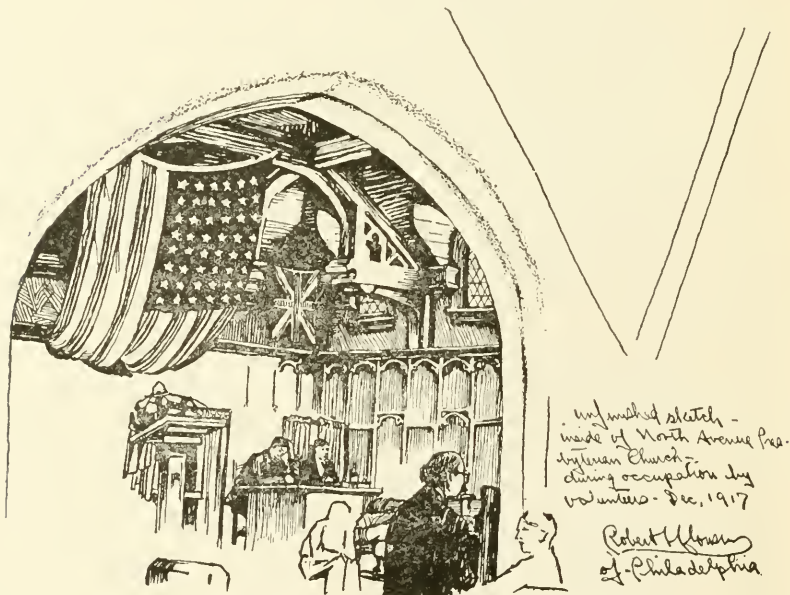 unfinished sketch -
inside of North Avenue Pres-
byterian Church -
during occupation by
volunteers - Dec, 1917
Robert
of - Philadelphia